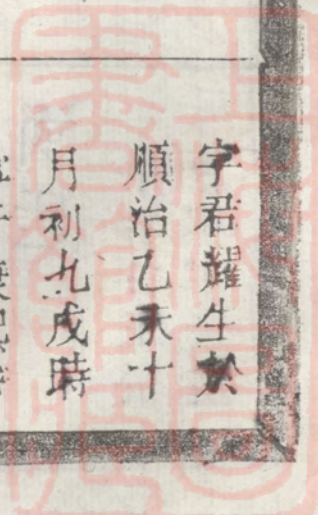 字君耀生於
順治乙未十
月初九戌時